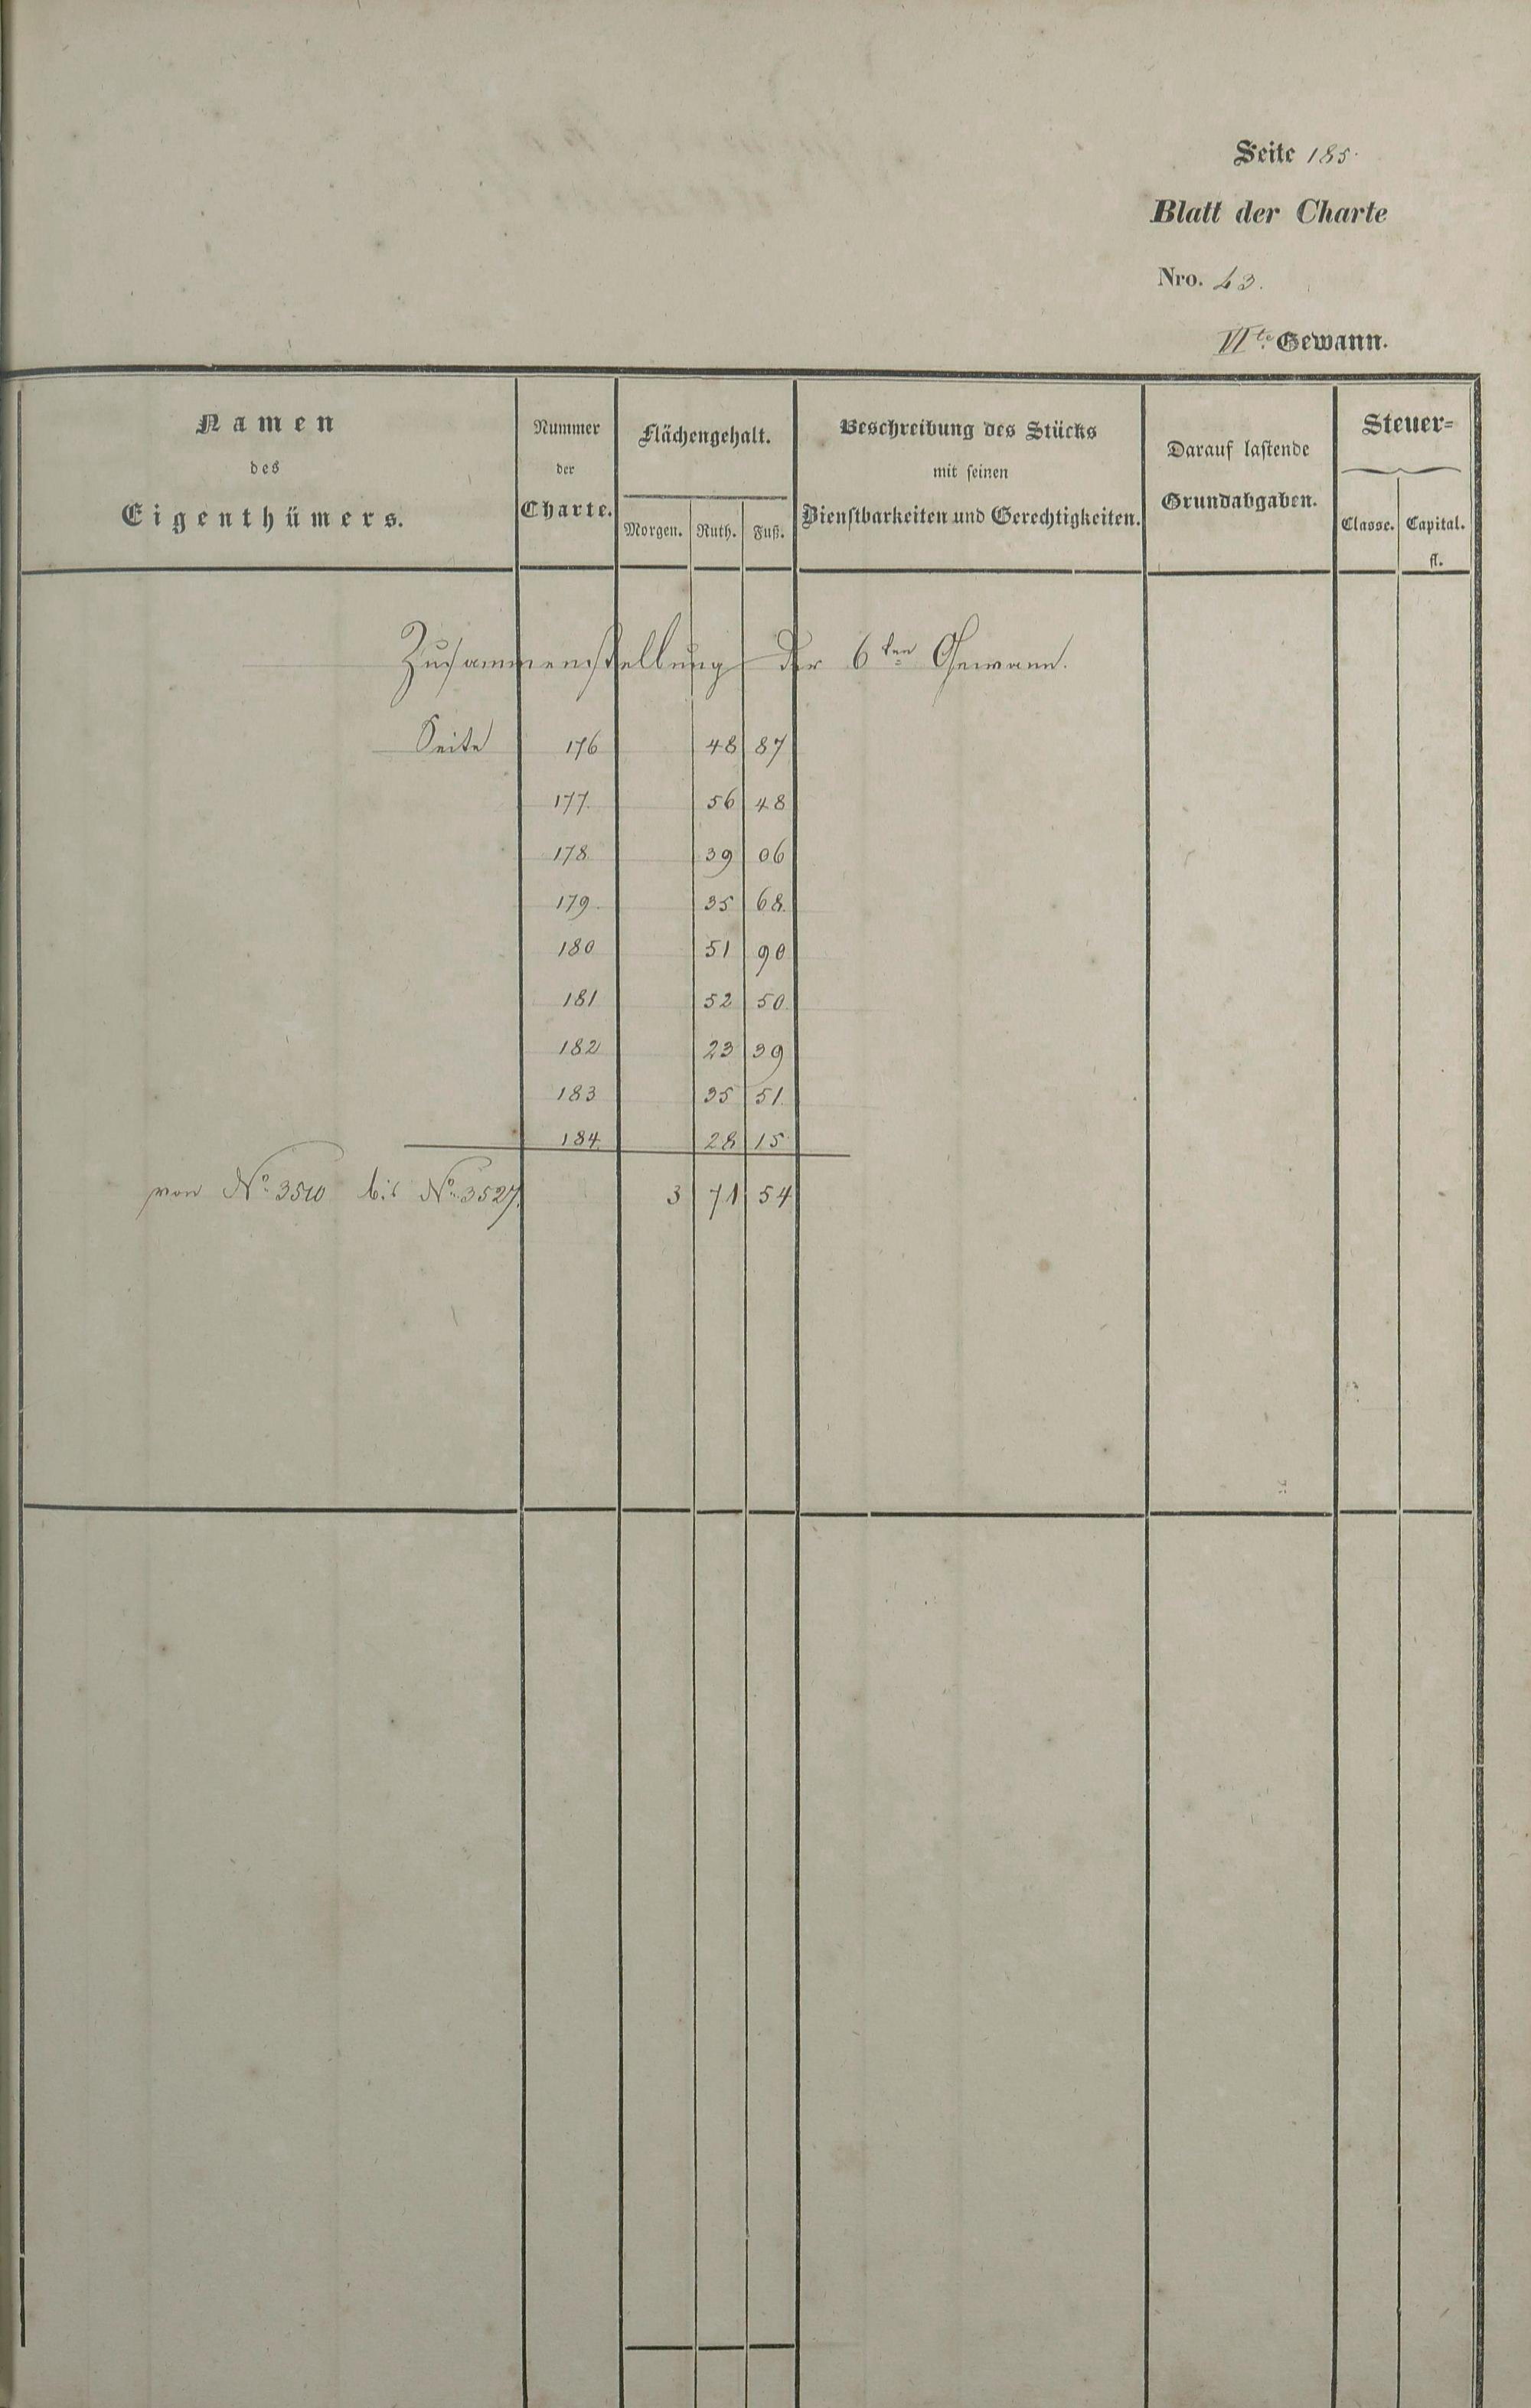 Seite 185.
Blatt der Charte
Nro. 43.
VIte Gewann.
Namen
des
Eigenthümers.
Nummer
der
Charte.
Flächengehalt.
Morgen. Ruth. Fuß.
Beschreibung des Stücks
mit seinen
Dienstbarkeiten und Gerechtigkeiten.
Darauf lastende
Grundabgaben.
Steuer-
Classe. Capital.
fl.
Zusammenstellung der 6ten Gewann.
Seite 176 48 87
177. 56 48
178. 39 06
179. 35 68.
180 51 90
181 52 50.
182 23 39
183 35 51.
184. 28 15
von No. 3510 bis No. 3527. 3 71 54